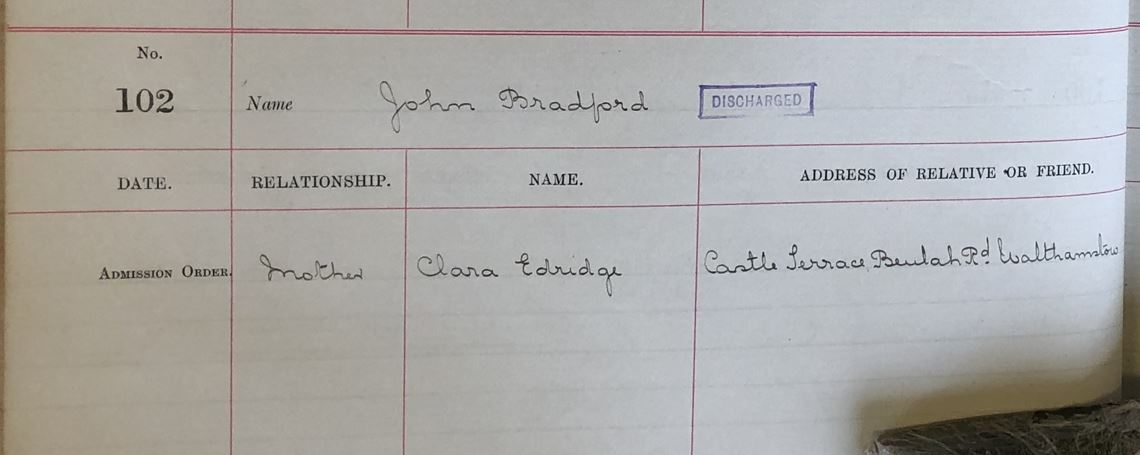 No.
102 Name John Bradford DISCHARGED
DATE. RELATIONSHIP. NAME. ADDRESS OF RELATIVE OR FRIEND.
ADMISSION ORDER. Mother Clara Edridge Castle Terrace Beulah Rd Walthamstow